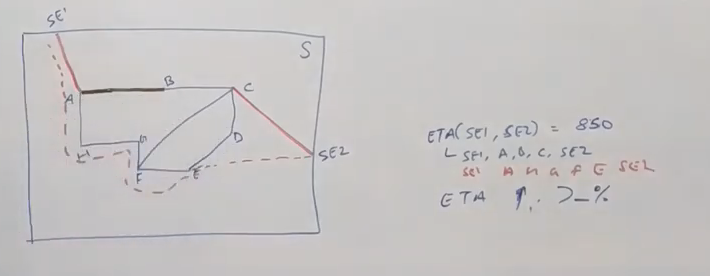 SE1
S
A
B
C
D
E
F
G
H
SE2
ETA(SE1, SE2) = 850
SE1, A, B, C, SE2
SE1 A H G F E SE2
ETA